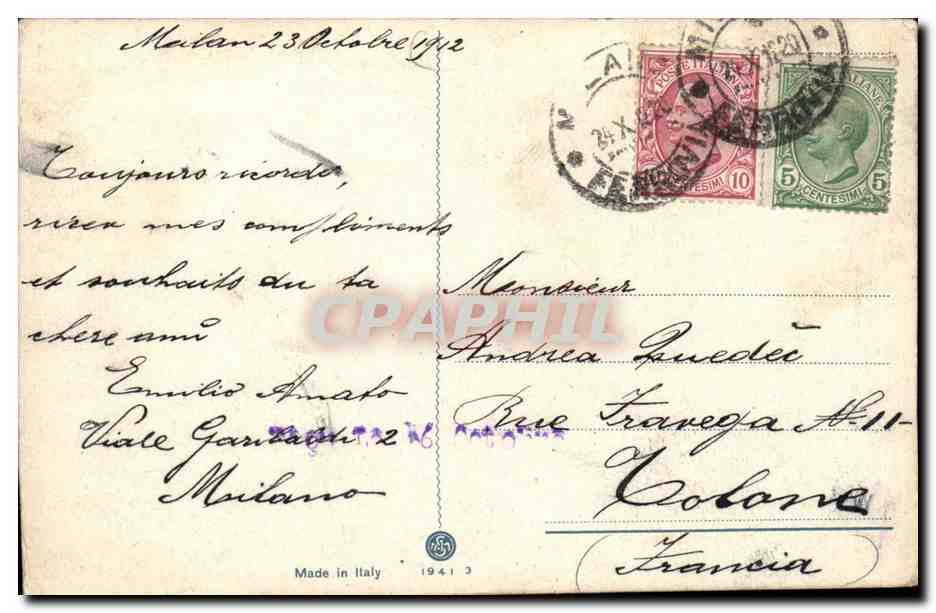 Milan 23 Octobre 1912
Toujours ricordo,
mes compliments
et souhaits du ta
chere ami
Emilio Amato
Viale Garibaldi 2
Milano
POSTE ITALIANE
10
CENTESIMI
5 CENTESIMI 5
24 X
FERROVIA
Monsieur
Andrea Quedec
Rue Fravega No 11-
Tolone
Francia
CPAPHIL
Made in Italy
1941 3